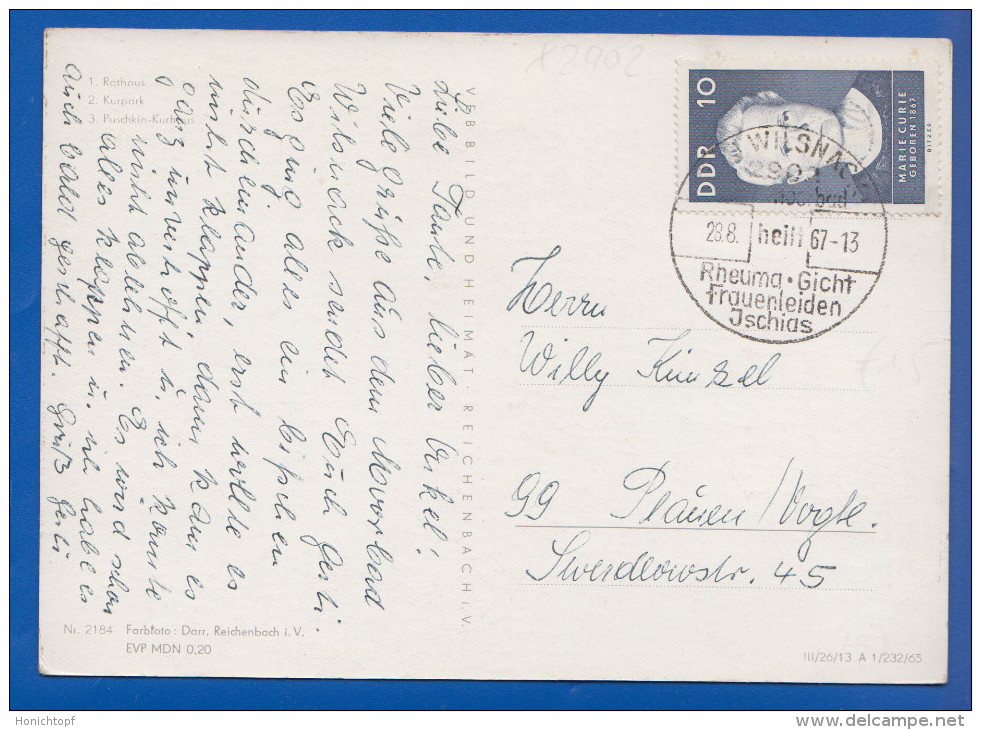 X2902
1. Rathaus
2. Kurpark
3. Puschkin-Kurhaus
VEB BILD UND HEIMAT · REICHENBACH i. V.
Liebe Tante, lieber Onkel!
Viele Grüße aus dem Moorbad
Wilsnack sendet Euch Gerti.
Es ging alles ein bißchen
durcheinander, erst wollte es
nicht klappen, dann kam es
ganz unverhofft u. ich konnte
nicht ablehnen. Es wird schon
alles klappen u. ich habe es
auch bald geschafft. Gruß Gerti
DDR 10
MARIE CURIE
GEBOREN 1867
BITZER
WILSNACK
2902
Moorbad
28.8. heilt 67-13
Rheuma · Gicht
Frauenleiden
Jschias
Herrn
Willy Künzel
99 Plauen/Vogtl.
Swerdlowstr. 45
Nr. 2184 Farbfoto: Darr, Reichenbach i. V.
EVP MDN 0,20
III/26/13 A 1/232/65
Honichtopf
delcampe.net